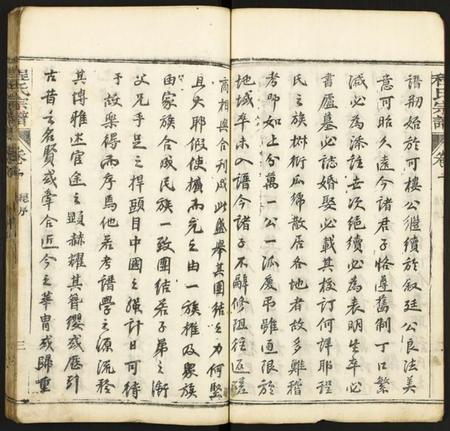 程氏宗譜
卷一
譜刱始於可樓公繼續於叙廷公良法美
意可昭久遠今諸君子恪遵舊制丁口繁
減必為添註世次絕續必為表明生卒必
書廬墓必誌婚娶必載其校訂何詳耶程
民之族椒衍瓜綿散居各地者故多難稽
考即如上分萬一公一派慶弔雖通限於
地域卒未入譜今諸子不辭修阻往返磋
商相與合刊成此盛舉其團結之力何堅
且大耶假使擴而充之由一族推及衆族
由家族合成民族一致團結若子弟之衛
父兄手足之捍頭目中國之強計日可待
予故樂得而序焉他若考譜學之源流矜
其博雅述宦途之顯赫耀其簪纓或歷引
古昔之名賢或牽合近今之華冑或歸重
程氏宗譜
卷一
序
三